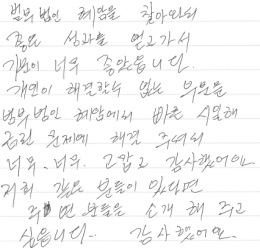 법무법인 혜암을 찾아와서
좋은 성과를 얻고가서
기분이 너무 좋았습니다.
개인이 해결할수 없는 부분을
법무법인 혜암에서 빠른 시일에
금전 문제에 해결 주셔서
너무, 너무. 고맙고 감사했어요.
저희 같은 분들이 있다면
주변 분들을 소개 해 주고
싶습니다.. 감사했어요.